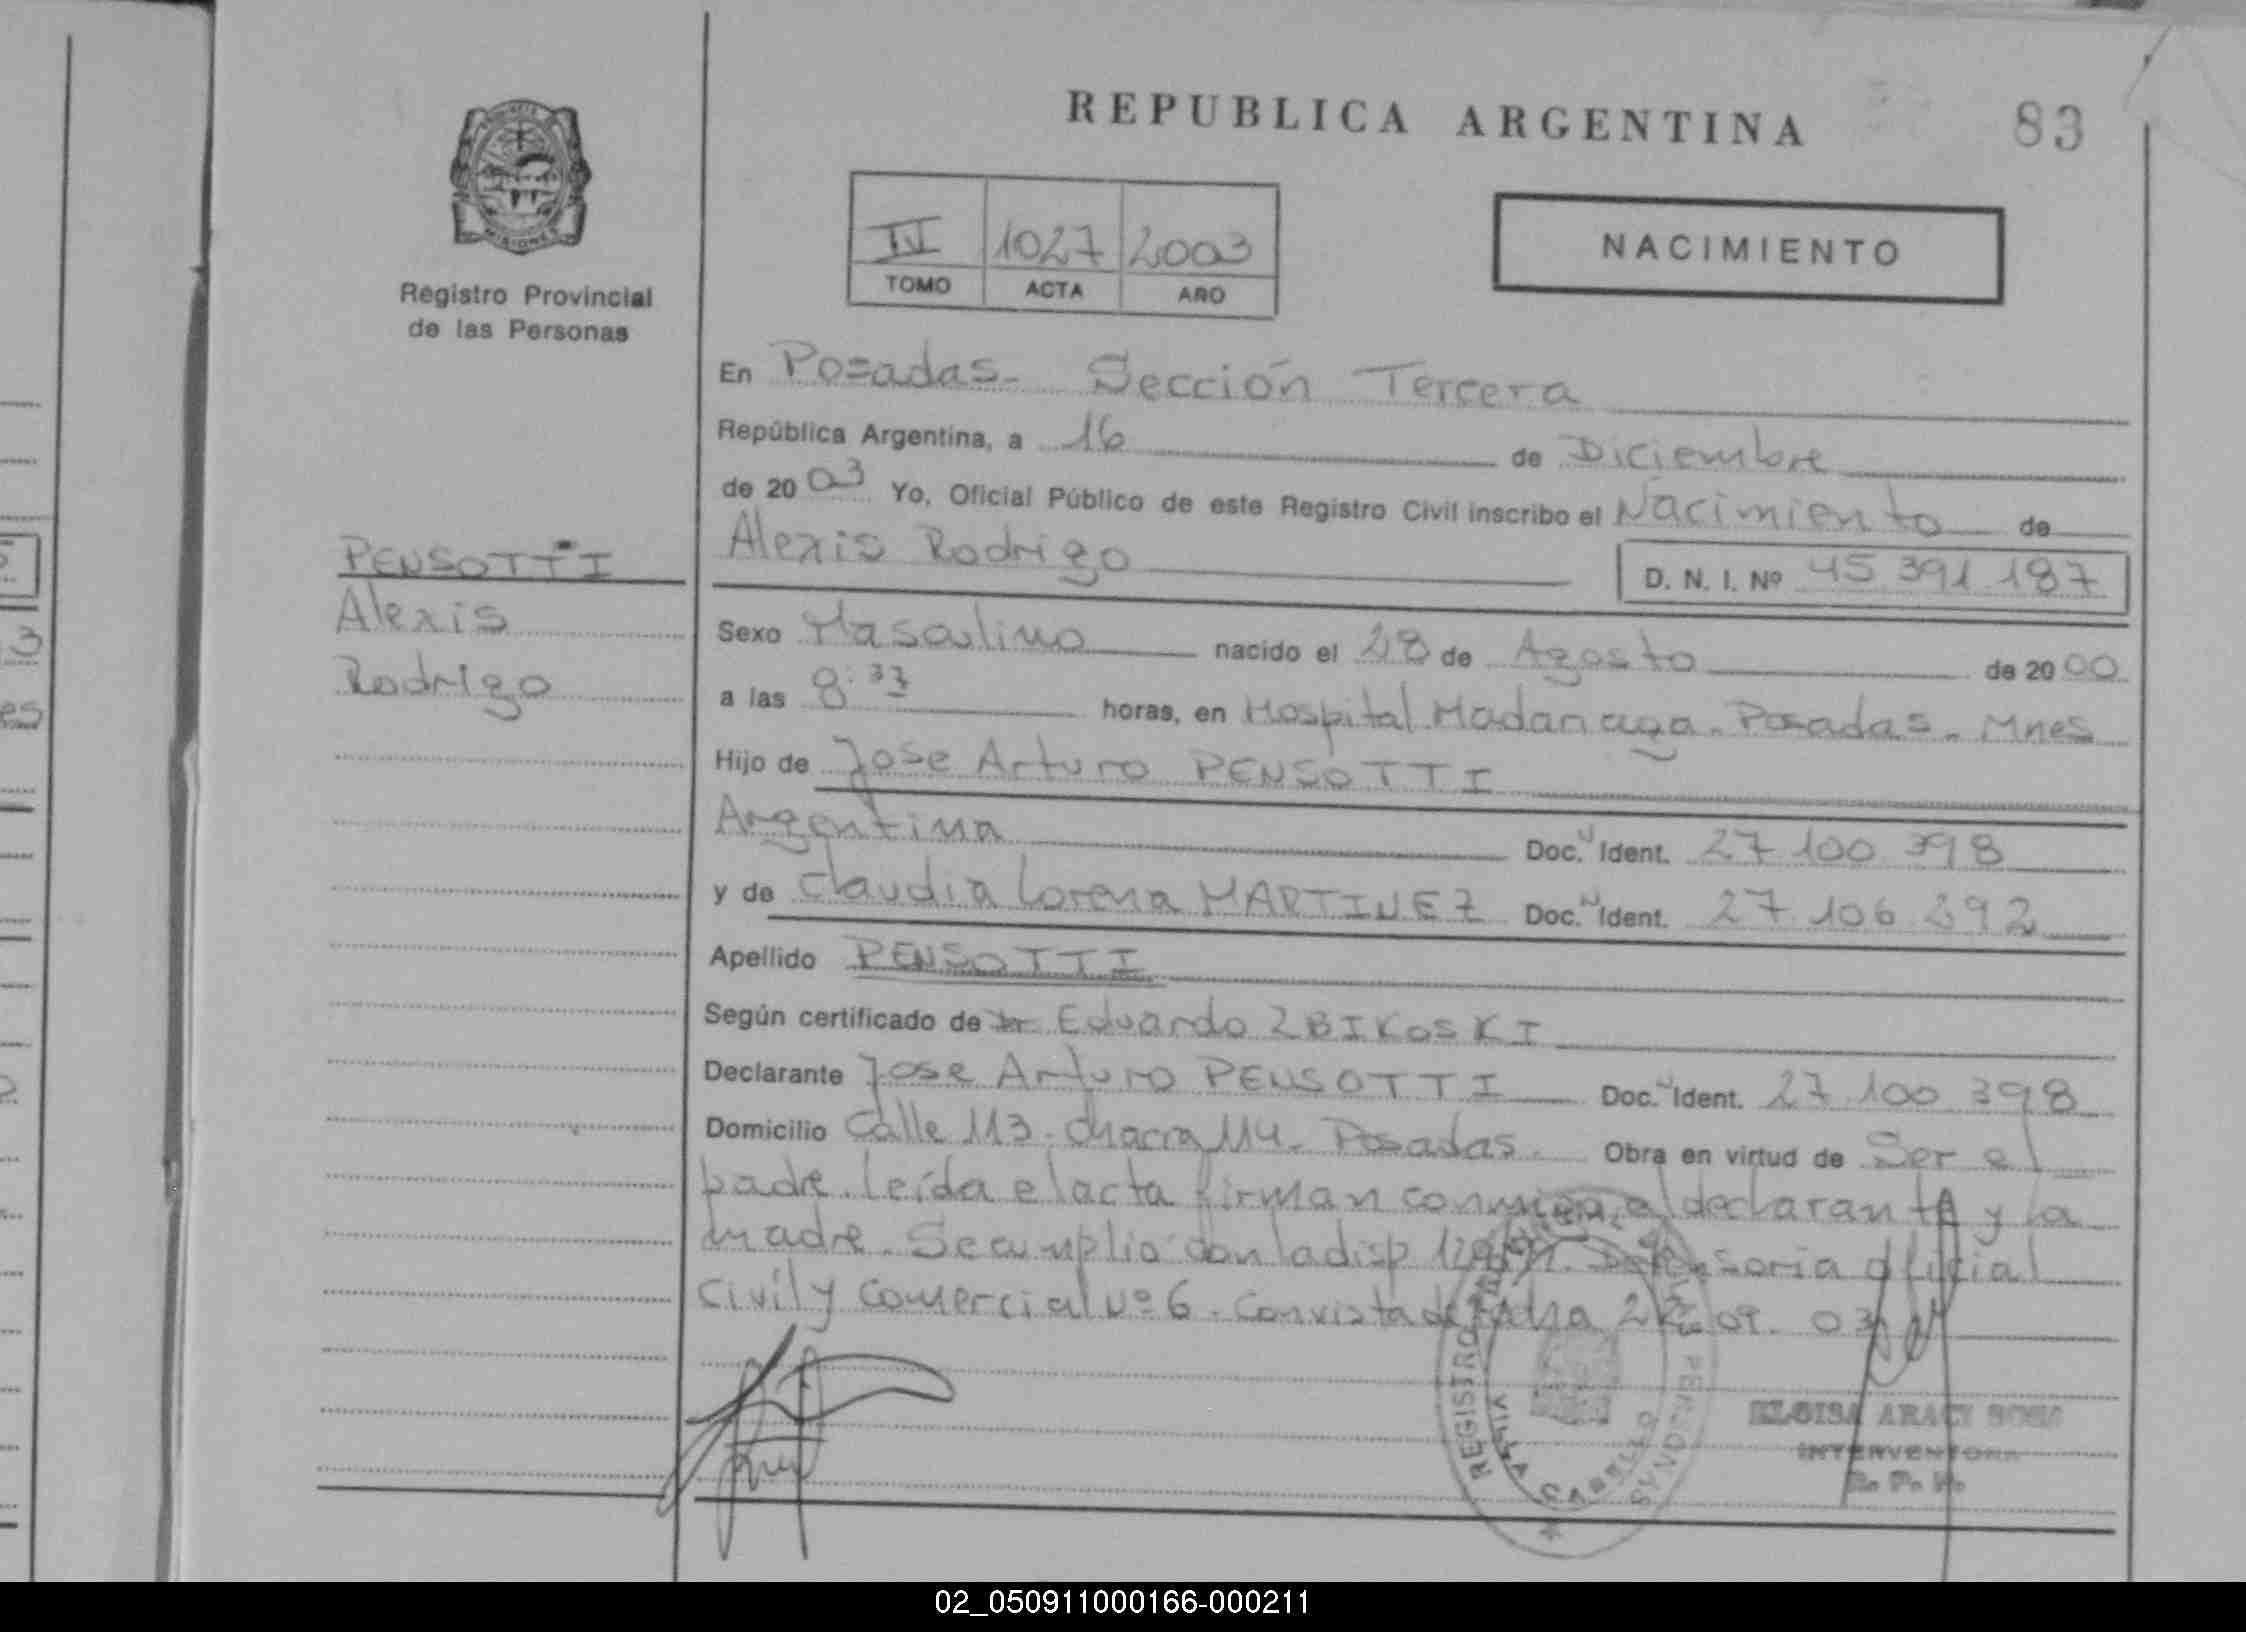 REPUBLICA ARGENTINA
83
MISIONES
Registro Provincial
de las Personas
IV 1027 2003
TOMO ACTA AÑO
NACIMIENTO
En Posadas - Sección Tercera
República Argentina, a 16 de Diciembre
de 2003 Yo, Oficial Público de este Registro Civil inscribo el Nacimiento de
Alexis Rodrigo D. N. I. Nº 45 391 187
PENSOTTI
Alexis
Rodrigo
Sexo Masculino nacido el 28 de Agosto de 2000
a las 8:37 horas, en Hospital Madariaga - Posadas - Mnes
Hijo de Jose Arturo PENSOTTI
Argentina Doc. Ident. 27 100 398
y de Claudia Lorena MARTINEZ Doc. Ident. 27 106 292
Apellido PENSOTTI
Según certificado de Dr. Eduardo ZBIKOSKI
Declarante Jose Arturo PENSOTTI Doc. Ident. 27 100 398
Domicilio Calle 113 - chacra 114 - Posadas. Obra en virtud de Ser el
padre. leída el acta firman conmigo el declarante y la
madre. Se cumplio con la disp Defensoria Oficial
Civil y Comercial Nº 6. Con vista de fecha 22 09. 03
REGISTRO PERSONAS
VILLA CABELLO
ELOISA ARACI SOSA
INTERVENTORA
R. P. P.
02_050911000166-000211